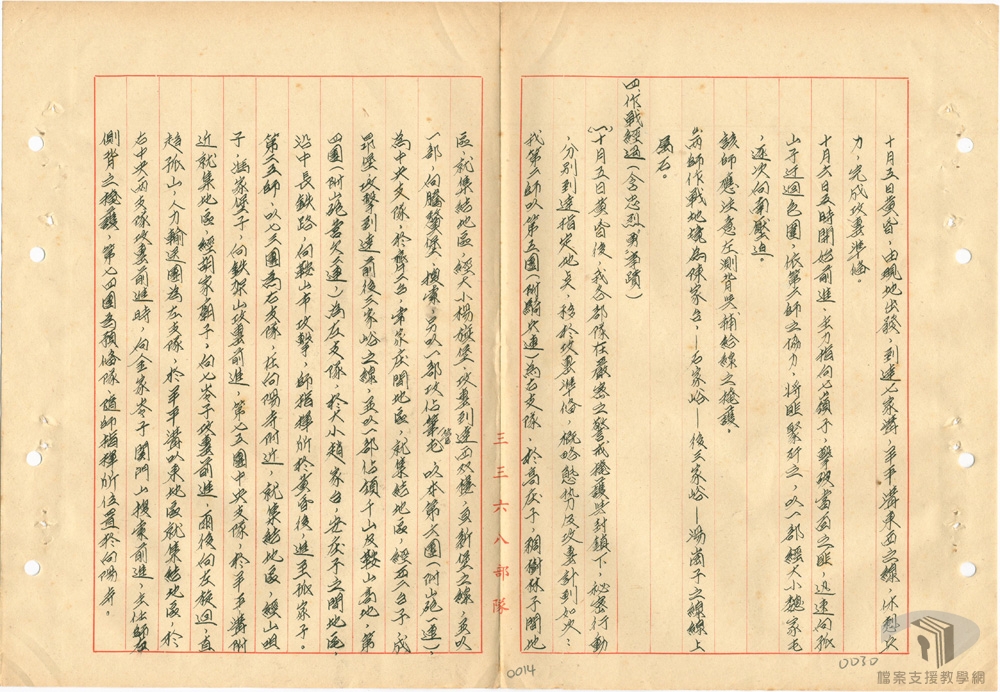 十月五日黃昏，由現地出發，到達七家溝，平溝東西之線，休憩火
力，完成攻擊準備。
十月六日五時開始前進，主力指向七嶺子，擊破當面之匪，迅速向孤
山子迂迴包圍，依第二師之協力，將匪聚歼之，以一部經大小趙家屯
，逐次向南壓迫。
該師應注意左測背與補給線之掩護。
兩師作戰地境為陳家台－石家峪－後三家峪－湯崗子之線線上
屬右。
四作戰經過（含忠烈勇事蹟）
（一）十月五日黃昏後，我各部隊在嚴密之警戒掩護與封鎖下，秘密行動
，分別到達指定地点，移於攻擊準備，概略態勢及攻擊計劃如次：
我第二師以第五團（附騎兵連）為右支隊，於高庄子，榆樹林子間地
三三六八部隊
區，就集結地區，經大小楊旗堡，攻擊到達西双堡，至新堡之線，並以
一部，向騰鰲堡，搜索，另以一部攻佔舊屯，以本第六團（附山砲一連），
為中央支隊，於齊三台，常家庄間地區，就集結地區，經五台子，成
昂堡，攻擊到達前後三家峪之線，並以一部佔領千山及鞍山高地，第
四團（附山砲營欠一連）為左支隊，於大小趙家台，安庄子之間地區，
沿中長鐵路，向鞍山市攻擊，師指揮所於黃昏後，進至孤家子。
第二五師，以七三團為右支隊，在向陽寺附近，就集結地區，經山咀
子，楊家堡子，向鉄架山攻擊前進，第七五團中央支隊，於平溝附
近就集結地區，經胡家廟子，向七岺子攻擊前進，爾後向左旋迴，直
趋孤山，人力輸送團為左支隊，於平溝以東地區就集結地區，於
右中央兩支隊攻擊前進時，向金家岺子，関門山搜索前進，主任師左
側背之掩護，第七四團為預備隊，隨師指揮所位置於向陽寺。
0014
0030
檔案支援教學網